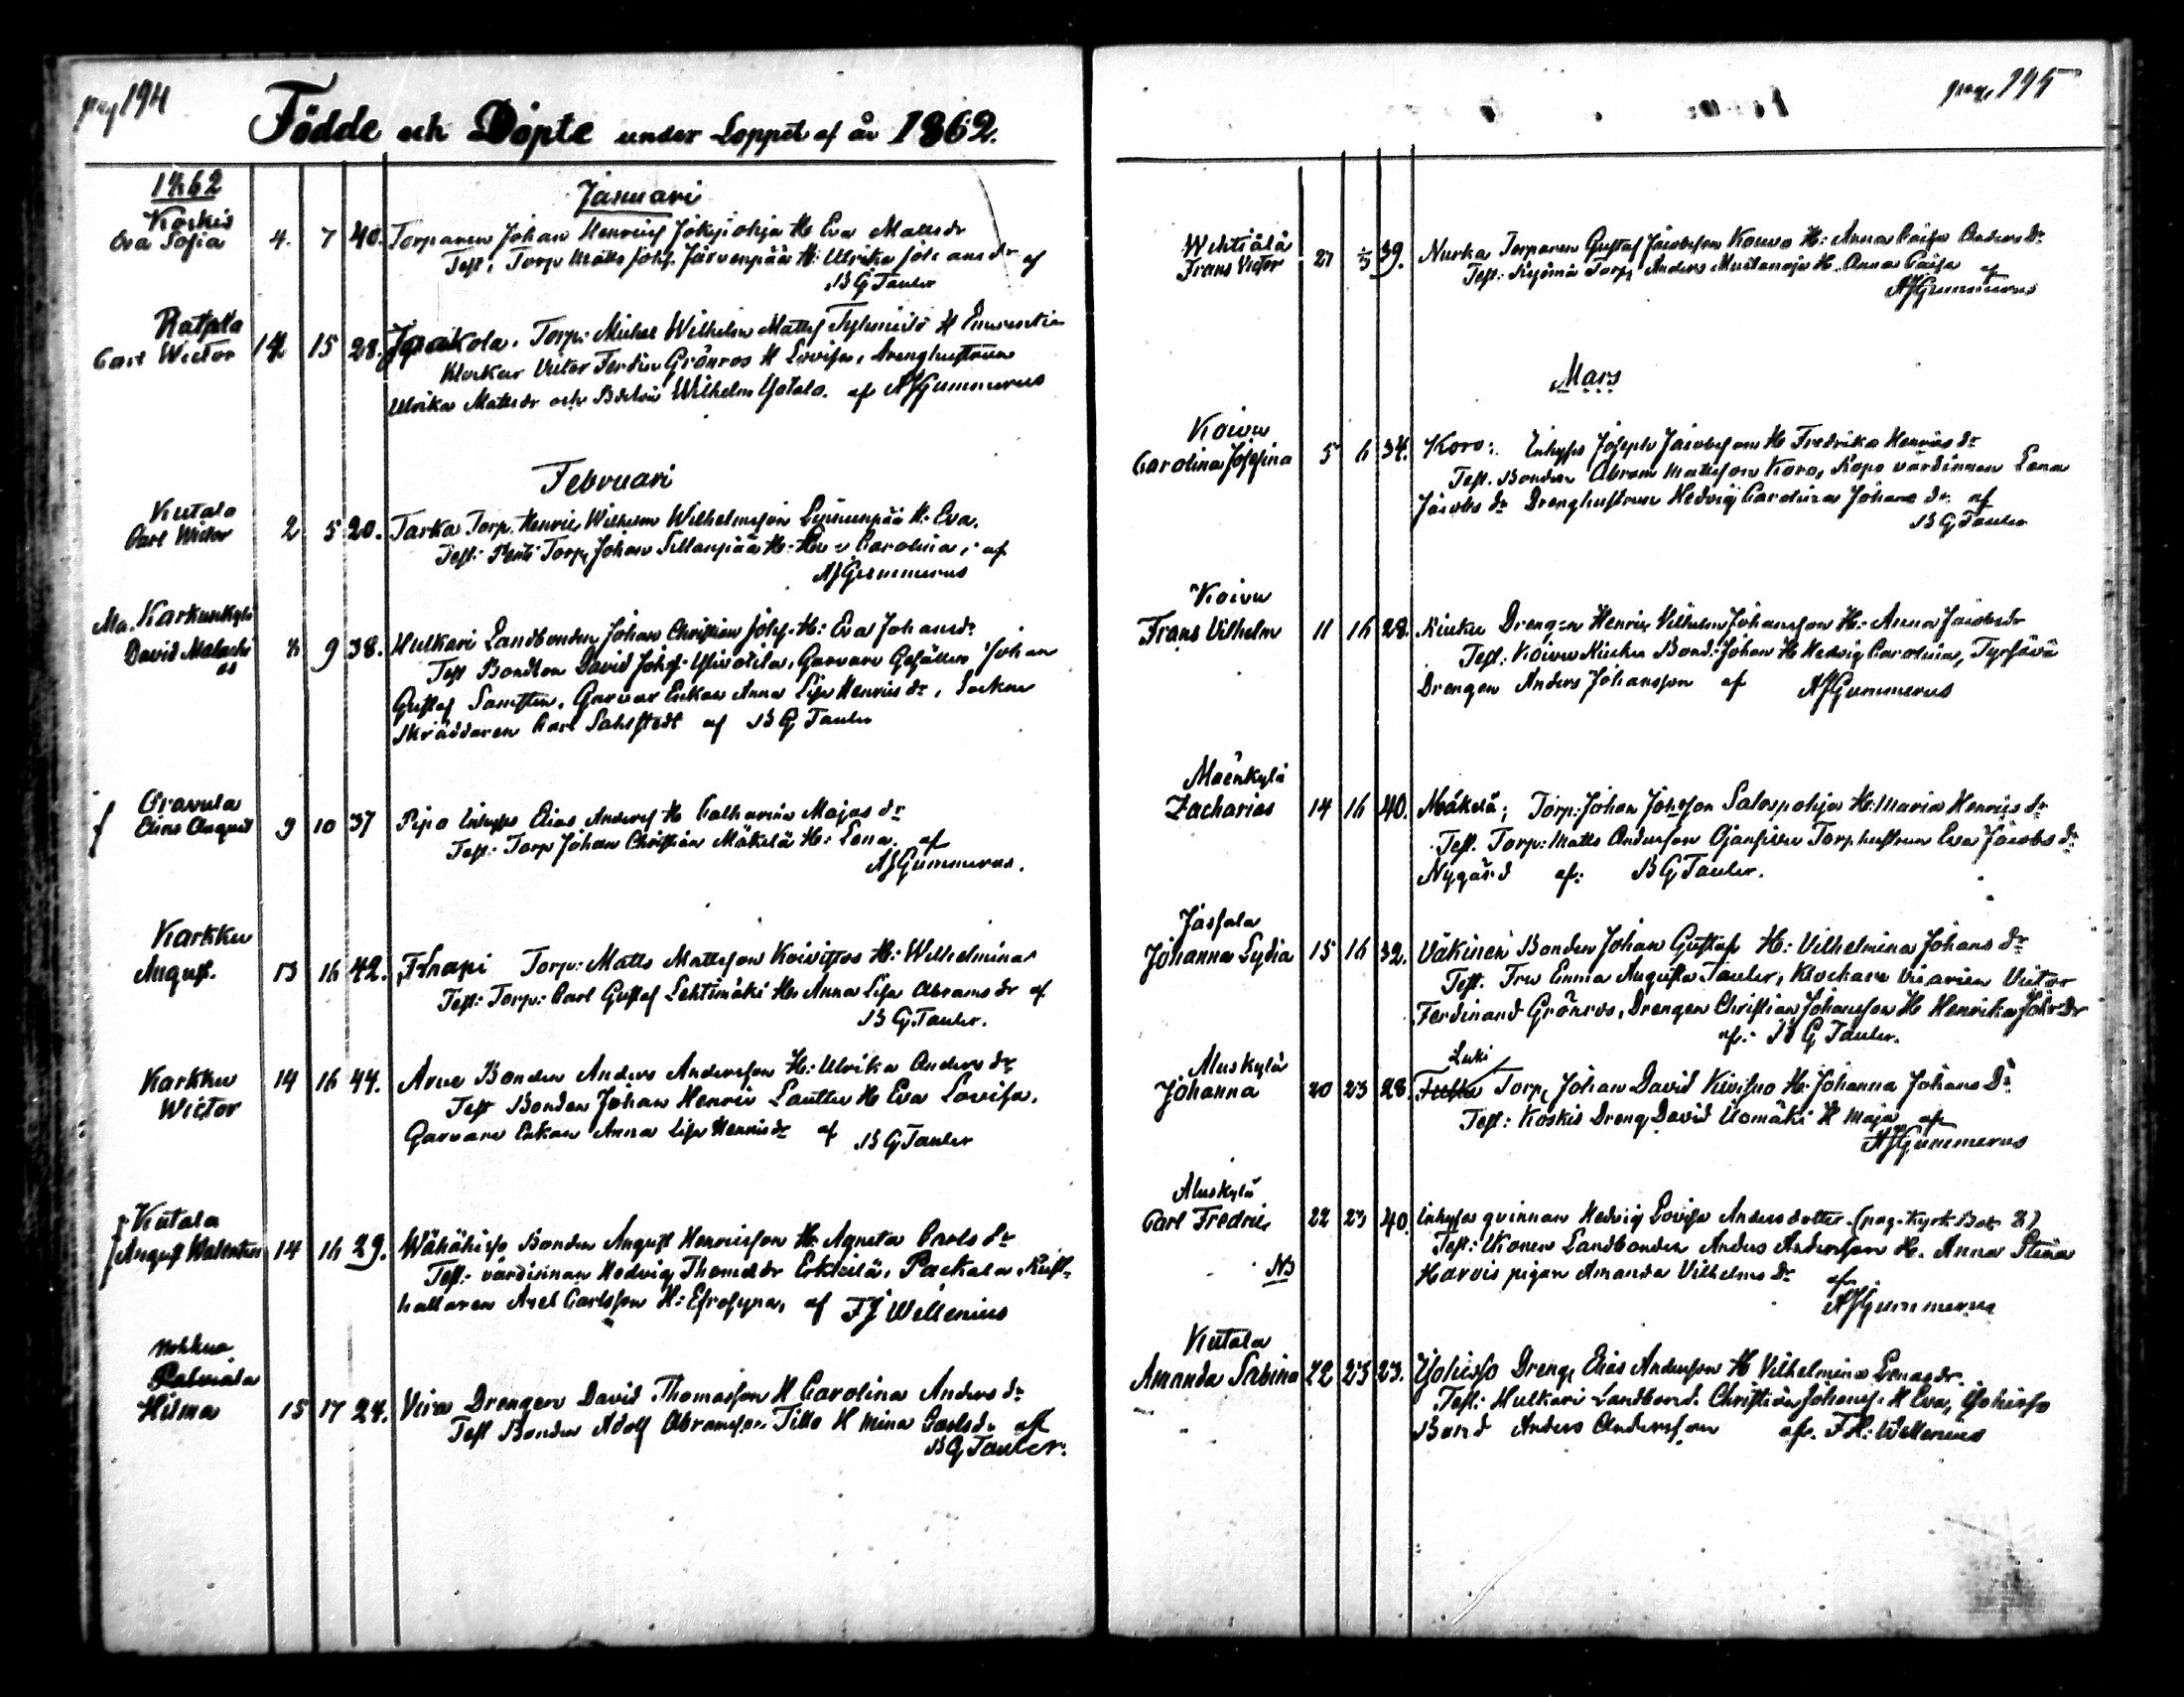 pag 194
Födde och Döpte under Loppet af år 1862.
1862
Januari
Koskis
Eva Sofia 4. 7 40. Torparen Johan Henrics Jokisiohja H Eva Mattsdr
Test: Torp Matts Johsf. Järvenpää H: Ulrika Johansdr af
B G Tauler
Ratsilla
Carl Wictor 14 15 28. Jaakola. Torp: Michel Wilhelm Mattsf H
Klockar Victor Ferdin Grönros H Lovisa, Drenghustrun
Ulrika Mattsdr och Bdson Wilhelm Yotalo. af AJGummerus
Februari
Kutala
Carl Wictor 2 5 20. Tarka Torp. Henric Wilhelm Wilhelmsson Linnunpää H: Eva.
Test: Pentti Torp Johan Sillanpää H: Carolina, af
AJGummerus
Ma. Karkunkylä
David Malachi
as 8 9 38. Hulkari Landbonden Johan Christian Johsf. H: Eva Johansdr
Test Bondson David Johsf. Ylivotila, Garvare Gesällen Johan
Gustaf Samsten, Garvar Enkan Anna Lisa Henricsdr, Socken
Skräddaren Carl Sahlstedt af B G Tauler
Oravula
Elias August 9 10 37 Pipo Inhyses Elias Andersf H Catharina Majasdr
Test: Torp Johan Christian Mäkelä H: Lena. af
AJGummerus.
Karkku
August. 13 16 42. Knapi Torp: Matts Mattsson Koivistos H: Wilhelmina
Test: Torp: Carl Gustaf Lehtimäki H: Anna Lisa Abramsdr af
B G. Tauler.
Karkku
Wictor 14 16 44. Arve Bonden Anders Andersson H: Ulrika Andersdr
Test Bonden Johan Henric Lauttu H Eva Lovisa.
Garvare Enkan Anna Lisa Henricsdr af B G Tauler
Kutala
August Walentin 14 16 29. Wähähiisso Bonden August Henricsson H: Agneta Carlsdr
Test: värdinnan Hedvig Thomasdr Erkkilä, Packala Rust-
hållaren Axel Carlsson H: Efrosyna, af FJ Wellenius
Nohkua
Palviala
Hilma 15 17 24. Vira Drengen David Thomasson H Carolina Andersdr
Test Bonden Adolf Abramsson Tillo H Mina Carlsdr af
B G Tauler.
pag. 195
Wehtiälä
Frans Victor 27 2/3 39. Nurka Torparen Gustaf Jacobsson Kouvo H: Anna Caisa Andersdr
Test: Torp Anders Mustanoja H. Anna Caisa af
AJGummerus
Mars
Koivu
Carolina Josefina 5 6 34. Koro: Inhyses Joseph Jacobsson H Fredrika Henricsdr
Test. Bonden Abram Mattsson Koro, Kopo värdinnan Lena
Jacobsdr Drenghustrun Hedvig Carolina Johansdr af
B G Tauler
Koivu
Frans Vilhelm 11 16 28. Kiuku Drengen Henric Vilhelm Johansson H: Anna Jacobsdr
Test: Koivu Kiuku Bond: Johan H Hedvig Carolina, Tyrfävä
Drengen Anders Johansson af AJGummerus
Mäenkylä
Zacharias 14 16 40. Mäkelä; Torp: Johan Johsson Salospohja H: Maria Henricsdr
Test. Torp: Matts Andersson Ojansivu Torphustrun Eva Jacobsdr
Nygård af: B G Tauler.
Jaffala
Johanna Lydia 15 16 32. Väkinen Bonden Johan Gustafs H: Vilhelmina Johansdr
Test. Fru Emma Augusta Tauler, Klockare vicarien Victor
Ferdinand Grönros, Drengen Christian Johansson H Henrika Johsdr
af: B G Tauler.
Aluskylä
Johanna 20 23 28. Luki Torp Johan David Kivisuo H: Johanna Johans Dr
Test: Koskis Dreng David Uomäki H Maja af
AJGummerus
Aluskylä
Carl Fredric 22 23 40. Inhyses qvinnan Hedvig Lovisa Andersdotter (pag. Kyrk Bok 8)
Test: Ikonen Landbonden Anders Andersson H. Anna Stina
NB
Harvis pigan Amanda Vilhelmsdr af
AJGummerus
Kutala
Amanda Sabina 22 23 23. Yohiisso Dreng Elias Andersson H Vilhelmina Enasdr.
Test: Hulkari Landbond. Christian Johansf. H Eva, Yohiisso
Bond Anders Andersson af. FH: Wellenius